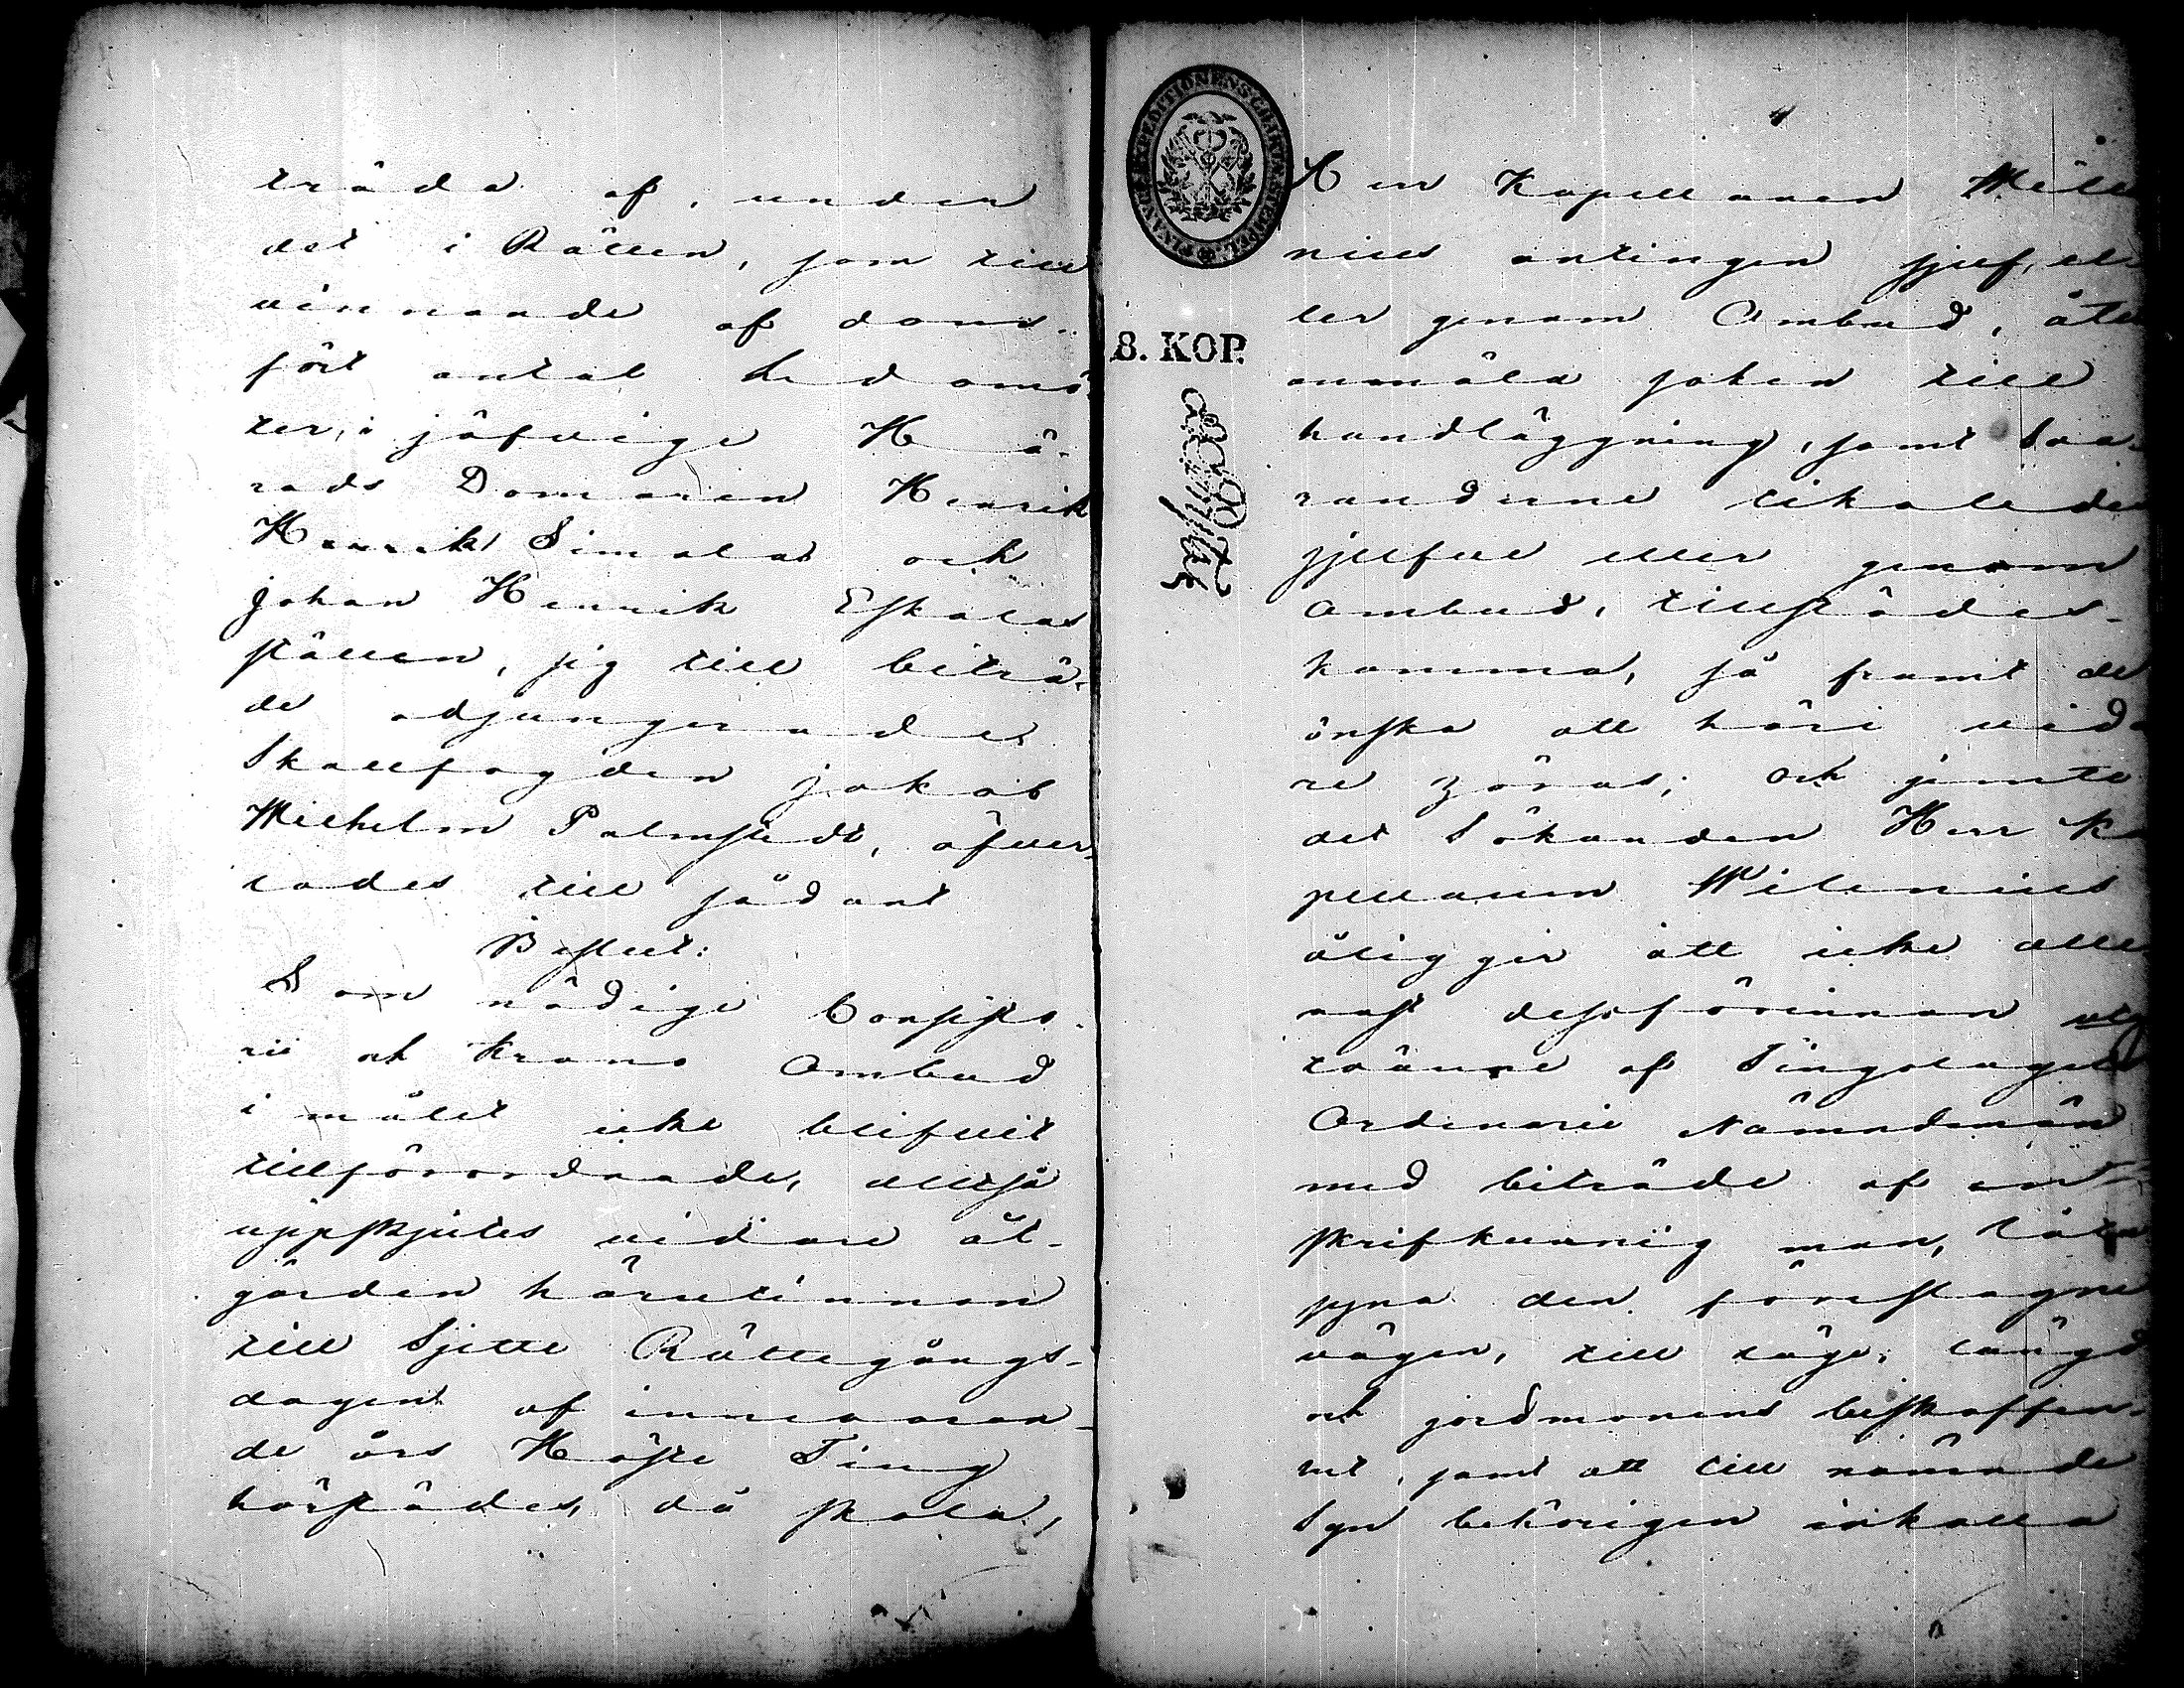 träda af, under
det i Rätten, som till
vinnande af doms-
fört antal ledamö-
ter, i jäfvige Hä-
rads Domaren Henrik
Henrik Simolas och
Johan Henrik Eskolas
ställen, sig till biträ-
de adjungerade
Skallfogden Jakob
Wilhelm Palmstedt, öfver-
lades till sådant
Beslut:
Som nödige Consisto-
rii och Krono Ombud
i målet icke blifvit
tillförordnade, alltså
uppskjutes vidare åt-
gärden härutinnan
till Sjette Rättegångs-
dagen af innevaran-
de års Höste Ting
härstädes, då skola,
FINANCE EXPEDITIONENS CHARTÆ STEMPEL
8. KOP.
Herr Kapellanen Wile
nius antingen sjelf, el-
ler genom Ombud, åter
anmäla saken till
handläggning, samt Sva-
randerne likaledes
sjelfve eller genom
Ombud, tillstädes-
komma, så framt de
önska att häri vida
re höras; och jemte
det Sökanden Herr Ka
pellanen Wilenius
åligger att icke alle
nast dessförinnan
tvänne af Tingslagets
Ordinarie Nämndemän
med biträde af en
skrifkunnig man, låta
syna den föreslagne
vägen, till läge, längd
och jordmonens beskaffen-
het, samt att till nämnde
Syn behörigen inkalla